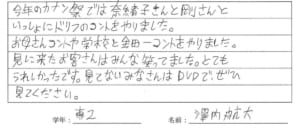 今年のカナン祭では奈緒子さんと剛さんと
いっしょにドリフのコントをやりました。
お母さんコントや学校と金田一コントをやりました。
見に来たお客さんはみんな笑ってました。とても
うれしかったです。見てないみなさんはDVDで、ぜひ
見てください。
学年: 専2 名前: 澤内 航大